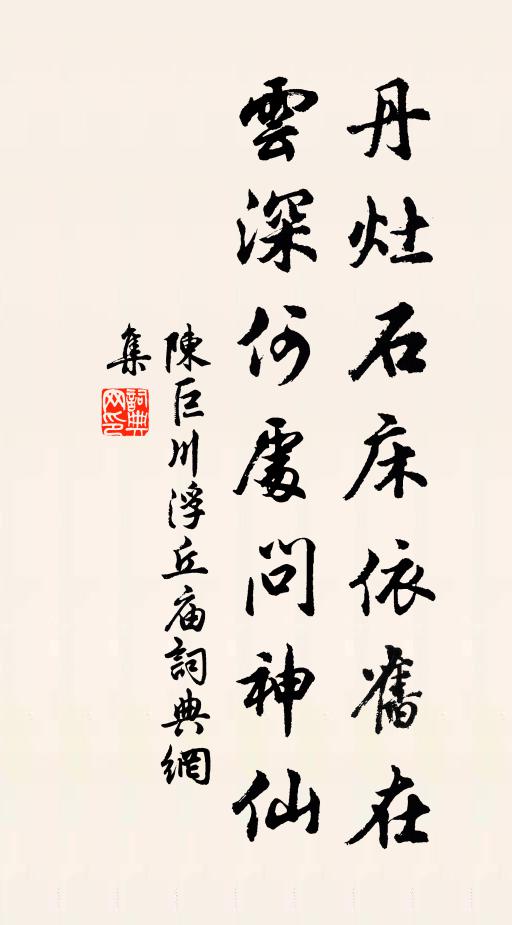 丹灶石床依舊在
雲深何處問神仙
陳巨川浮丘庙詞典網
集
詞典
网印